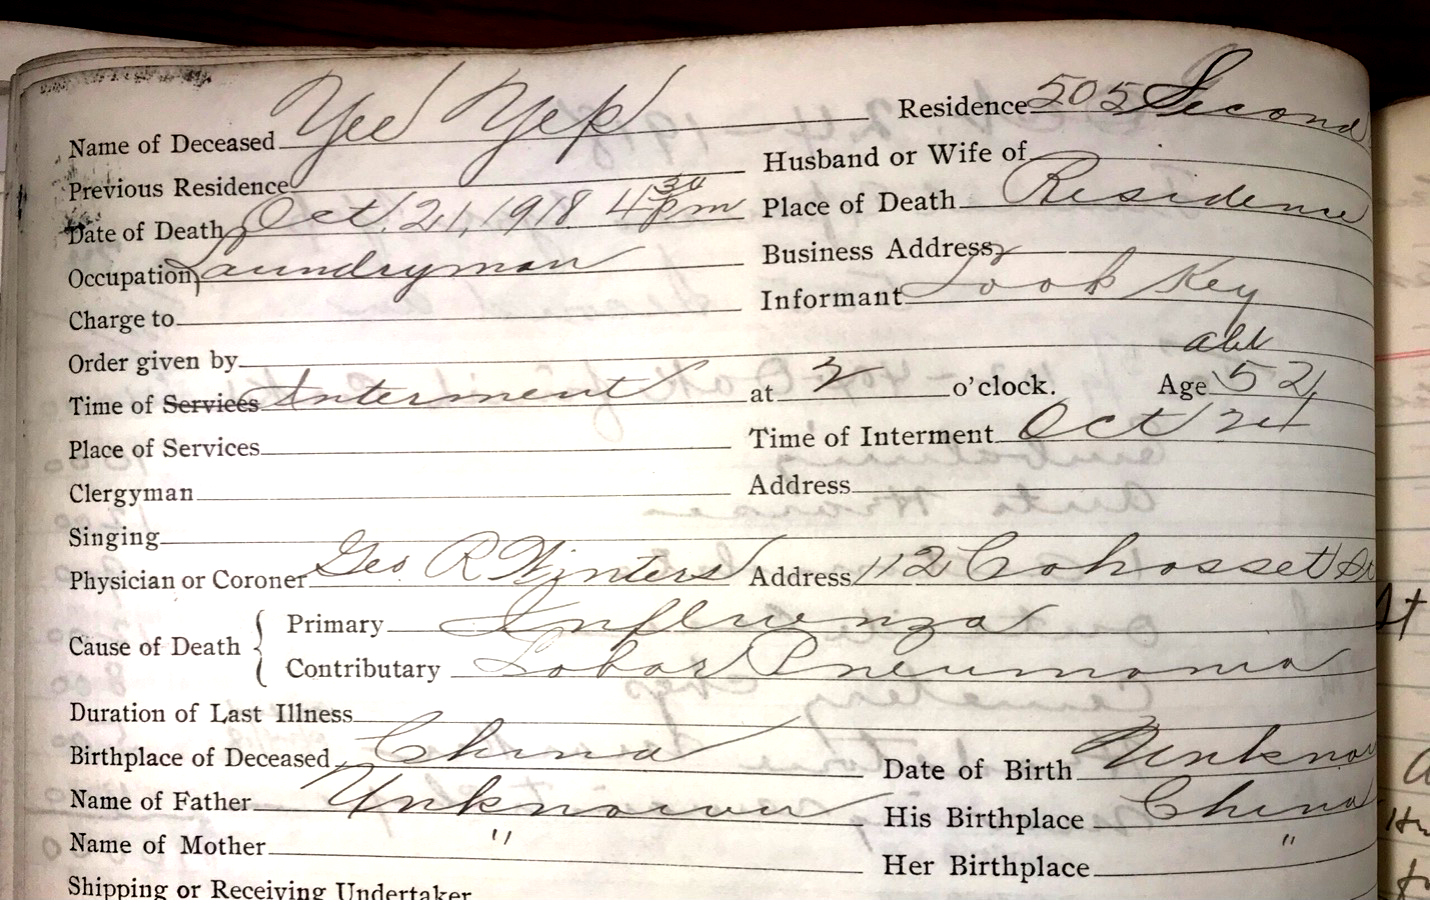 Name of Deceased Yee Yep Residence 505 Second
Previous Residence Husband or Wife of
Date of Death Oct. 21, 1918 4 30 pm Place of Death Residence
Occupation Laundryman Business Address
Charge to Informant Look Key
Order given by abt
Time of Services Interment at 3 o'clock. Age 52
Place of Services Time of Interment Oct 24
Clergyman Address
Singing
Physician or Coroner Geo R Winters Address 112 Cohosset St
Cause of Death { Primary Influenza
Contributary Lobar Pneumonia
Duration of Last Illness
Birthplace of Deceased China Date of Birth Unknow
Name of Father Unknown His Birthplace China
Name of Mother " Her Birthplace "
Shipping or Receiving Undertaker